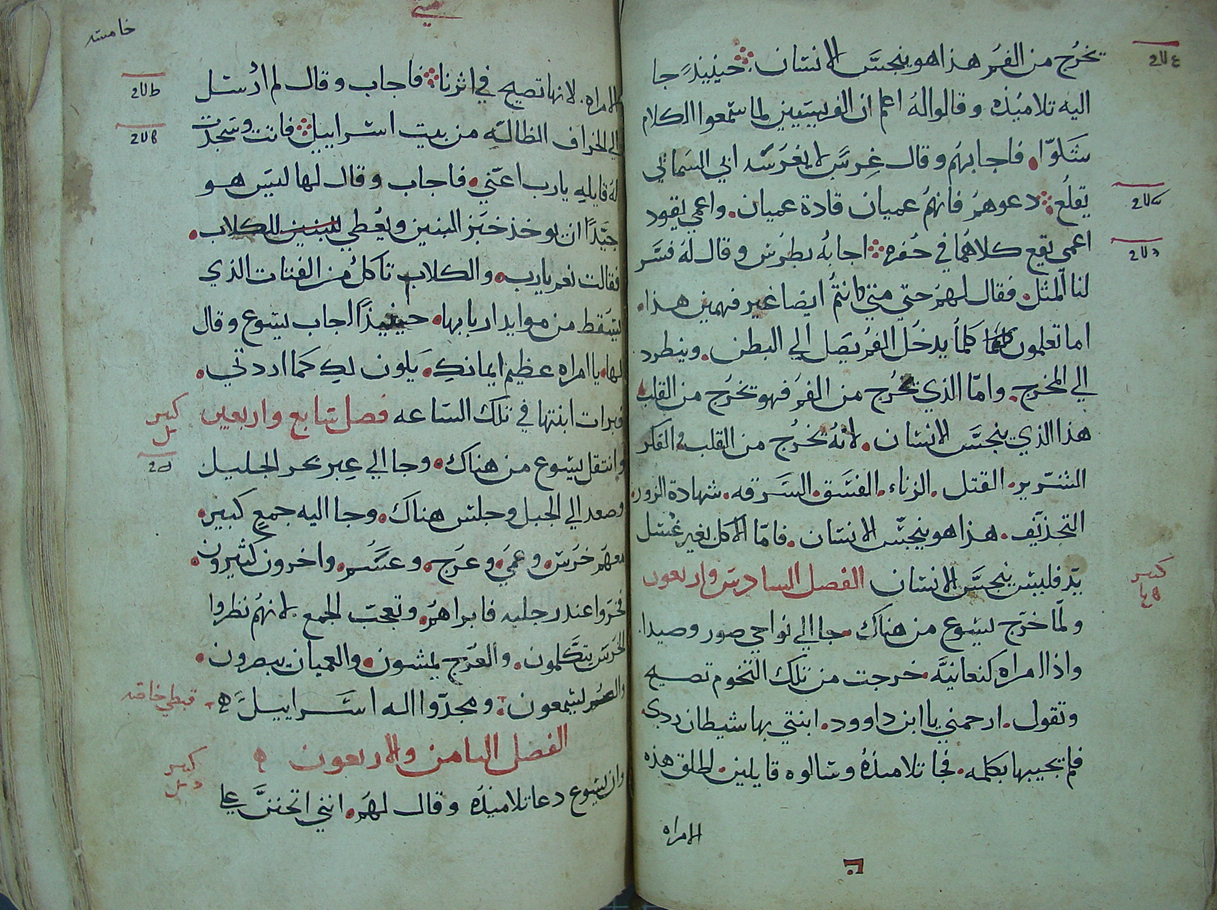 تخرُج من الفم هذا هو ينجسّ الانسان ۞ حينيذٍ جا
اليه تلاميذه وقالوا لهُ اعلم ان الفريسيين لما سمعوا الكلام
شكّوا. فاجابهُم وقال غرسٌ لا يغرسه ابي السماىي
يقلع ۞ دعوهم فانهُم عميان قادة عميان. واعمى يقود
اعمى يقع كلاهُما في حُفره ۞ اجابهُ بطرُس وقال لهُ فسّر
لنا المثل. فقال لهم حتى متى انتُم ايضا غير فهمين هذا.
اما تعلمون كلما يدخُل الفم يصَل الي البطن. وينطرد
الي المخرج. وامّا الذي تخرُج من الفم فهو تخرُج من القلب
هذا الذي ينجسّ الانسان. لانهُ تخرُج من القلب الفكر
الشرير. القتل. الزناء. الفسق. السرقه. شهادة الزور.
التجذيف. هذا هو ينجسّ الانسان. فامّا الاكل بغير غسل
يدٍ فليس ينجسّ الانسان الفصل السادس واربعون
ولمّا خرج يسوع من هناك. جا الي نواحي صور وصيدا.
واذا امراه كنعانيّه. خرجت من تلك التخوم تصيح
وتقول. ارحمني يا ابن داوود. ابنتي بها شيطان ردي.
فلم يجيبها بكلمه. فجا تلاميذهُ وسالوه قايلين. لطلق هذه
الامراه
خامسه
الامراه. لانها تصيح في اثرنا ۞ فاجاب وقال لم ارُسل
الي الخراف الظالّه من بيت اسراييل ۞ فاتت وسجدت
لهُ قايلهِ يارب اعنّي. فاجاب وقال لها ليس هو
جيّدًا ان يوخذ خبز البنين ويُعطي للبنين للكلاب.
فقالت نعم يارب. والكلاب تاكلُ من الفتات الذي
يسَقط من موايد اربابها. حينيذٍ اجاب يسوع وقال
لها. يا امراه عظيم ايمانكِ. يكون لكِ كما اردتي.
فبرات ابنتها في تلك السّاعه فصل سَابع واربعين
وانتقل يسوع من هناك. وجا الي عِبر بحر الجليل
وصعد الي الجبل وجلس هناك. وجا اليه جمع كبير.
معهم خرُس. وعُمي. وعرَج. وعسُم. واخرون كثيرون.
فخرّوا عند رجليه فابراهُم. وتعجبّ الجمع لانهُم نظروا
الخرس يتكلمون. والعرج يمشون. والعميان يبصرون.
والصُم يسَمعون. ومجدّوا اله اسراييل
قبطي خاصه
الفصل الثامن والاربعون
وان يسُوع دعا تلاميذهُ وقال لهم. انني اتحننّ علي